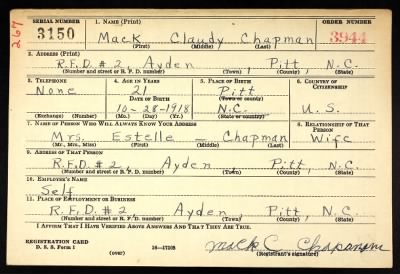 267
SERIAL NUMBER 1. NAME (Print) ORDER NUMBER
3150 Mack Claudy Chapman 3944
(First) (Middle) (Last)
2. ADDRESS (Print)
R.F.D. # 2 Ayden Pitt, N.C.
(Number and street or R. F. D. number) (Town) (County) (State)
3. TELEPHONE 4. AGE IN YEARS 5. PLACE OF BIRTH 6. COUNTRY OF CITIZENSHIP
None 21 Pitt
DATE OF BIRTH (Town or county)
10-28-1918 N.C. U.S.
(Exchange) (Number) (Mo.) (Day) (Yr.) (State or country)
7. NAME OF PERSON WHO WILL ALWAYS KNOW YOUR ADDRESS 8. RELATIONSHIP OF THAT PERSON
Mrs. Estelle — Chapman Wife
(Mr., Mrs., Miss) (First) (Middle) (Last)
9. ADDRESS OF THAT PERSON
R.F.D. # 2 Ayden Pitt, N.C.
(Number and street or R. F. D. number) (Town) (County) (State)
10. EMPLOYER'S NAME
Self
11. PLACE OF EMPLOYMENT OR BUSINESS
R.F.D. # 2 Ayden, Pitt, N.C.
(Number and street or R. F. D. number) (Town) (County) (State)
I AFFIRM THAT I HAVE VERIFIED ABOVE ANSWERS AND THAT THEY ARE TRUE.
REGISTRATION CARD
D. S. S. Form 1 16—17105 Mack C Chapman
(over) (Registrant's signature)